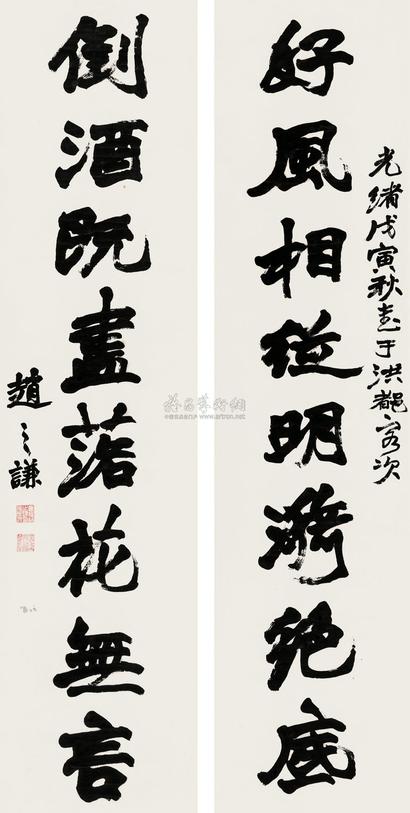 光緒戊寅秋書于洪都客次
好風相從明漪絕底
倒酒既盡落花無言
趙之謙
雅昌藝術網
www.artron.net